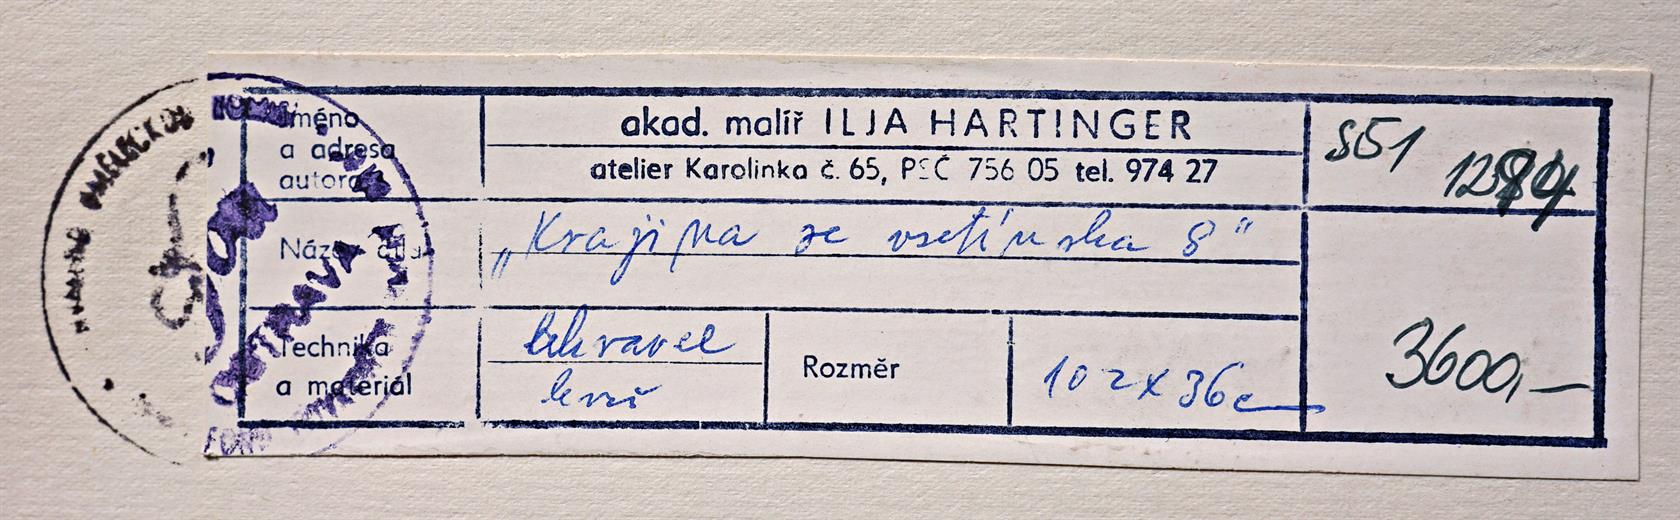 Jméno
a adresa
autora
akad. malíř ILJA HARTINGER
atelier Karolinka č. 65, PSČ 756 05 tel. 974 27
S51
Název díla
„Krajina ze vsetínska 8"
Technika
a materiál
Rozměr
102x36c
3600,—
OSTRAVA